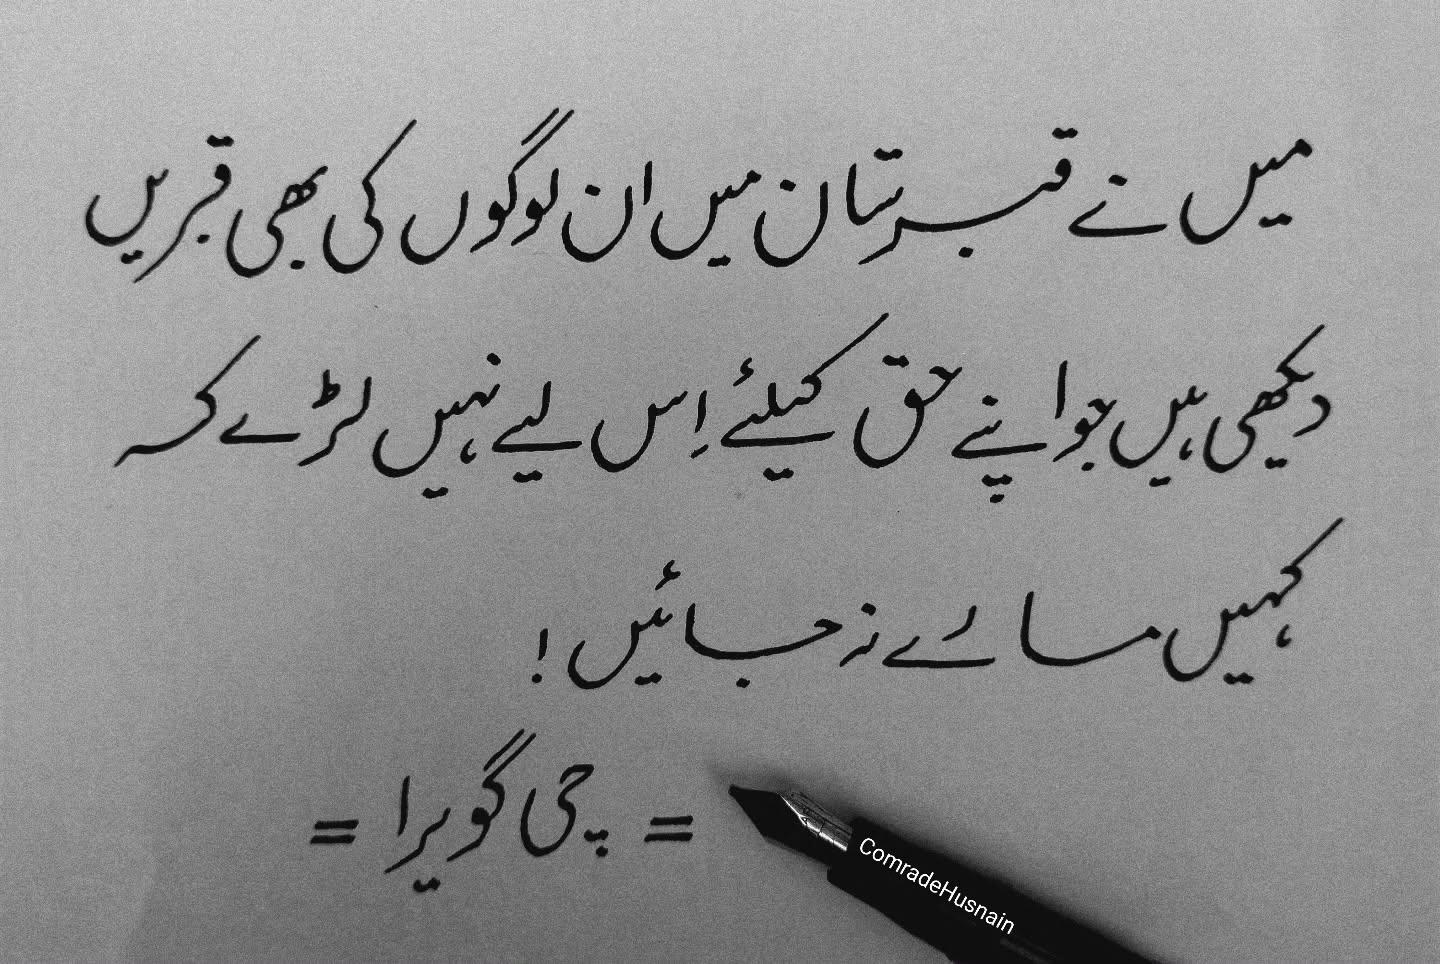 میں نے قبرستان میں ان لوگوں کی بھی قبریں
دیکھی ہیں جو اپنے حق کیلئے اِس لیے نہیں لڑے کہ
کہیں مارے نہ جائیں!
= چی گویرا =
ComradeHusnain